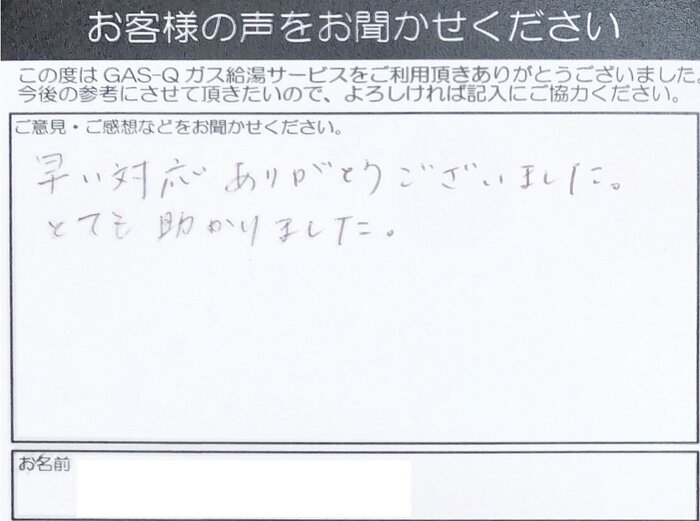 お客様の声をお聞かせください
この度はGAS-Qガス給湯サービスをご利用頂きありがとうございました。
今後の参考にさせて頂きたいので、よろしければ記入にご協力ください。
ご意見・ご感想などをお聞かせください。
早い対応ありがとうございました。
とても助かりました。
お名前